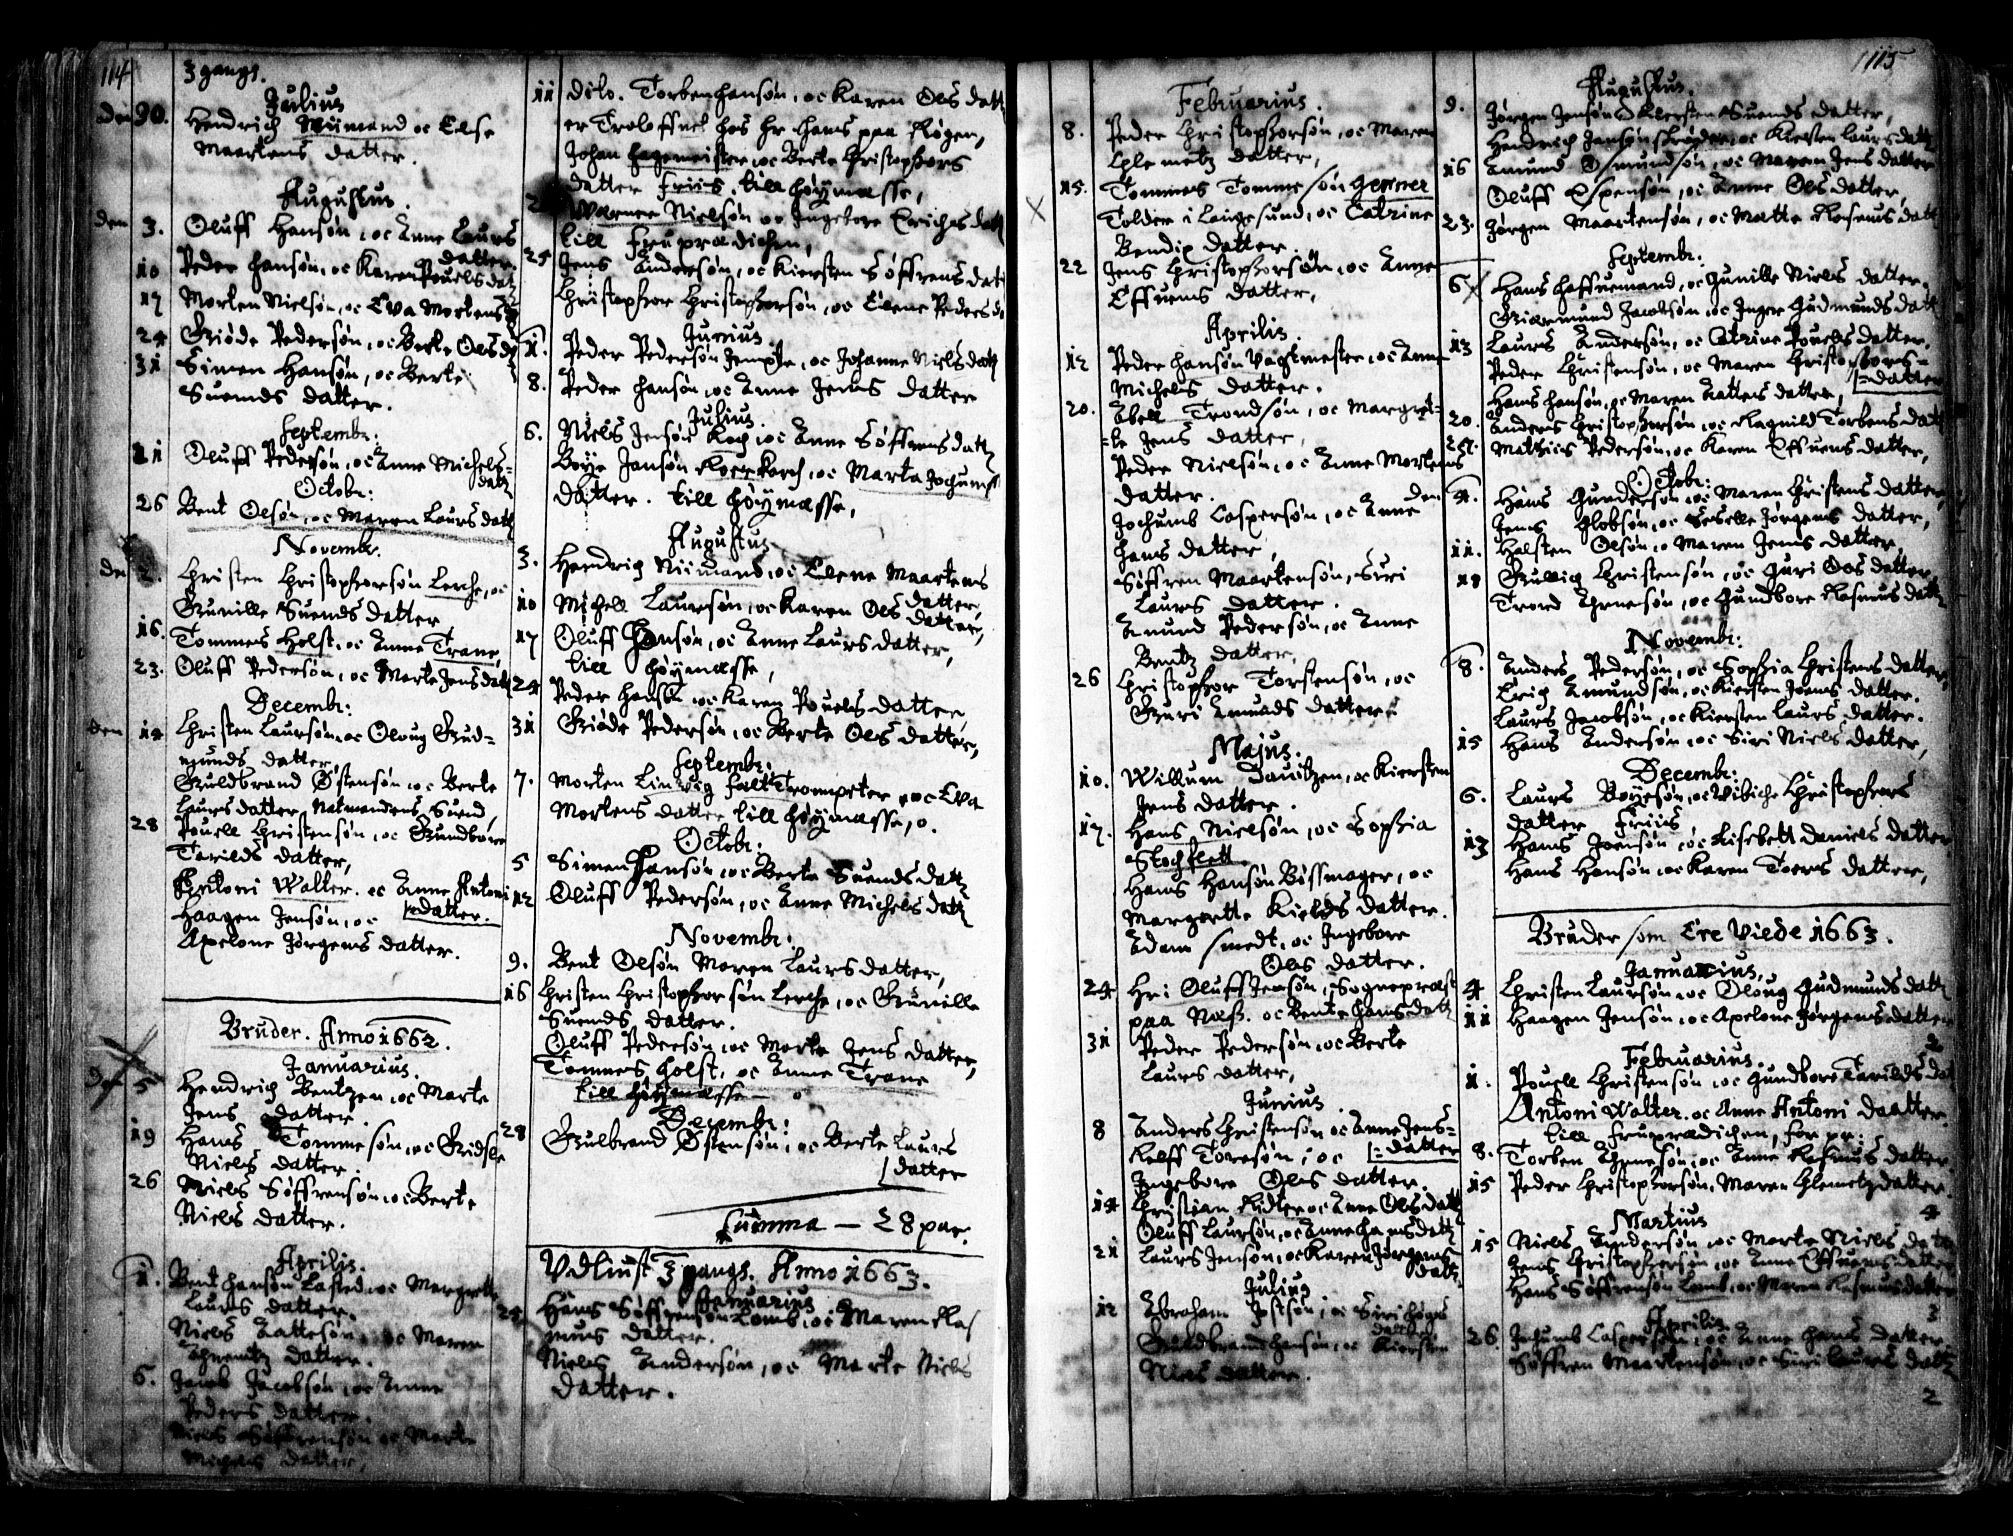 114
3 gangs.
Julius
den 90. Hendrich Wiimand oc Else
Maartens datter.
Augustus.
den 3. Oluff Hansøn, oc Anne Laurs
datter.
10 Peder hansøn, oc Karen Pouels datt
17 Morten Nielsøn, oc Eva Mortens
24 Giøde Pedersøn, oc Berte Ols d
31 Simen Hansøn, oc Berte
Suends datter.
Septembr:
21 Oluff Pedersøn, oc Anne Michels=
datt
Octobr:
26 Bent Olsøn, oc Maren Laurs datt
Novembr.
den 2. Christen Christophersøn Lerche, oc
Gunille Suends datter
16. Tommes Holst. oc Anne Trane,
23. Oluff Pedersøn, oc Marte Jens datt
Decembr:
den 14 Christen Laursøn, oc Oloug Gud=
munds datter,
Guldbrand Østensøn oc Berte
Laurs datter, Natmandens Suend,
28 Pouell Christensøn, oc Gundbore
Tarilds datter,
Antoni Walter. oc Anne Antoni
datter.
Haagen Jensøn, oc
Apelone Jørgens datter.
Bruder. Anno 1662.
Januarius.
den 5 Hendrich Bentzen oc Marte
Jens datter.
19 Hans Tommesøn, oc Gidsle
Niels datter.
26 Niels Søffrensøn oc Berte
Niels datter.
Aprilis.
1. Bent hansøn Lasted oc Margrette
Laurs datter.
Niels Aattesøn oc Maren
datter.
6. Jacob Jacobsøn, oc Anne
Peders datter.
Niels Søffrensøn oc Marte
Michels datter,
11 dito. Torben hansøn, oc Karen Ols datt
er Troloffuet hos hr Hans paa Røgen,
Johan Hagemeister oc Berte Christophers
datter Friis. till høymæsse,
Warner Nielsøn oc Ingebore Erichs datt
till Fruprædichen,
25 Jens Andersøn, oc Kiersten Søffrens datt
Christopher Christophersøn, oc Elene Peders d
Junius
1. Peder Pedersøn Jempte, oc Johanne Niels datt
8. Peder hansøn oc Anne Jens datter
Julius.
6. Niels Jensøn Koch oc Anne Søffrens datt
Boye Jansøn, oc Marta Jochums
datter. till høymæsse,
Augustus
3. Hendrich Niimand, oc Elene Maartens
datter,
10 Michell Laursøn, oc Karen Ols datter,
17 Oluff Hansøn, oc Anne Laurs datter,
till høymæsse,
24 Peder Hansøn oc Karen Pouels datter
31 Giøde Pedersøn, oc Berte Ols datter,
Septembr:
7. Morten felt Trompeter, oc Eva
Mortens datter till høymæsse, o.
Octobr:
5 Simen Hansøn, oc Berte Suends datt
12 Oluff Pedersøn, oc Anne Michels datt
Novembr.
9. Bent Olsøn Maren Laurs datter,
16 Christen Christophersøn Lerche, oc Gunille
Suends datter.
Oluff Pedersøn, oc Marte Jens datter,
Tommes Holst, oc Anne Trane
till høymæsse
Decembr:
28 Gulbrand Østensøn, oc Berte Laurs
datter
Summa — 28 par.
Vdliust 3 gangs. Anno 1663.
Januarius
25 Hans Søffrensøn Lomb, oc Maren Ras
mus datter.
Niels Andersøn, oc Marte Niels
datter.
115
Februarius.
8. Peder Christophersøn, oc Maren
Clemetz datter,
15. Tommes Tommesøn Genner
Tolder i Langesund, oc Catrine
Bendix datter.
22 Jens Christophersøn oc Anne
Effuens datter,
Aprilis.
12 Peder hansøn Vagtmester, oc Anne
Michels datter.
20. Abell Trondsøn, oc Margret=
te Jens datter,
Peder Nielsøn, oc Anne Mortens
datter.
Jochumb Caspersøn, oc Anne
Hans datter,
Søffren Maartensøn, Siri
Laurs datter.
Amund Pedersøn, oc Anne
Bentz datter,
26 Christopher Torstensøn, oc
Guri Amunds datter
Majus.
10. Willum Dauitzen, oc Kiersten
Jens datter.
17. Hans Nielsøn, oc Sophia
Stochflett
Hans Hansøn Bøssmager, oc
Margrette Kields datter.
Adam Smedt, oc Ingebore
Ols datter.
24 Hri Oluff Jensøn, Sogneprest
paa Næss. oc Bente Hans datt
31 Peder Pedersøn oc Berte
Laurs datter,
Junius
8 Anders Christensøn oc Anne Jens=
datter
Rolff Toresøn, oc
Ingebore Ols datter.
14 Christian Ridter oc Anne Ols datt
Oluff Laursøn, oc Anne Hans datt
21 Laurs Jensøn, oc Karen Jørgens
datt
Julius
12 Abraham Jostsøn, oc Siri
datt
Guldbrand hansøn, oc Kiersten
Niels datter.
Augustus.
9. Jørgen Jensøn oc Kiersten Suends datter,
Hendrich Jansøn oc Kiersten Laurs datt
16 Amund Osmundsøn, oc Maren Jens datter
Oluff Espensøn, oc Anne Ols datter,
23. Jørgen Maartensøn, oc Matte Rasmus datt
Septembr:
6 Hans Haffuemand, oc Gunille Niels datter.
Jacobsøn oc Inger Gudmunds datt
13 Laurs Andersøn, oc Catrine Pouels datter.
Peder Christensøn, oc Maren Christophers=
datter
Hans Hansøn, oc Maren Aattes datter,
20. Anders Christophersøn, oc Ragnild Torbens datt
27. Mathiis Pedersøn, oc Karen Effuens datter,
Octobr:
den 4. Hans Gundersøn oc Maren Christens datter,
Jens Globsøn, oc Seselle Jørgens datter,
11. Halsten Olsøn, oc Maren Jens datter,
18 Gullich Christensøn, oc Guri Ols datter,
Trond Arnesøn, oc Gundbore Rasmus datt
Novembr:
8. Anders Pedersøn, oc Sophia Christens datter,
Erich Amundsøn, oc Kiersten Joens datter.
Laurs Jacobsøn, oc Kiersten Laurs datter.
15 Hans Andersøn, oc Siri Niels datter,
Decembr:
6. Laurs Boyesøn, oc Vibiche Christophers
datter Friis
13 Hans Joensøn, oc Lisebett Daniels datter
Hans Hansøn, oc Karen Toers datter,
Bruder som Ere Viede 1663.
Januarius.
4 Christen Laursøn oc Oloug Gudmunds datt
11 Haagen Jensøn, oc Apelone Jørgens datter
2
Februarius.
1. Pouell Christensøn, oc Gundbore Tarilds dat
Antoni Walter. oc Anne Antoni daatter.
till Fruprædichen, for pr:
8. Torben Arnesøn, oc Anne Rasmus datter
15 Peder Christophersøn, Maren Clemetz datter.
4
Martius
15 Niels Andersøn oc Marte Niels datt
Jens Christophersøn, oc Anne Effuens datter
Hans Søffrensøn Lomb, oc Maren Rasmus datter
3
Aprilis
26. Jochumb Caspersøn, oc Anne Hans datter
Søffren Maartensøn, oc Siri Laurs datt
2